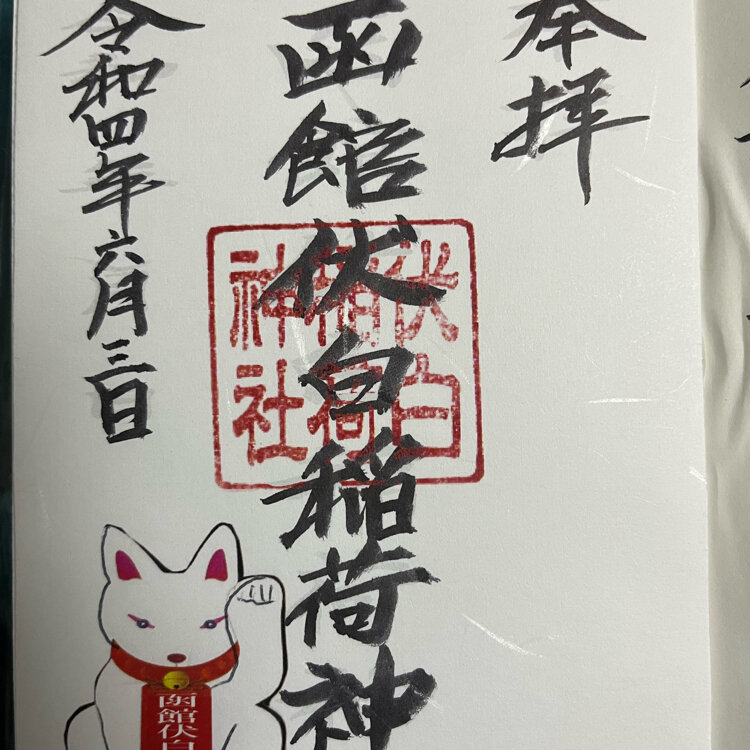 奉拝
函館伏白稲荷神
伏白
稲荷
神社
令和四年六月三日
函館伏白